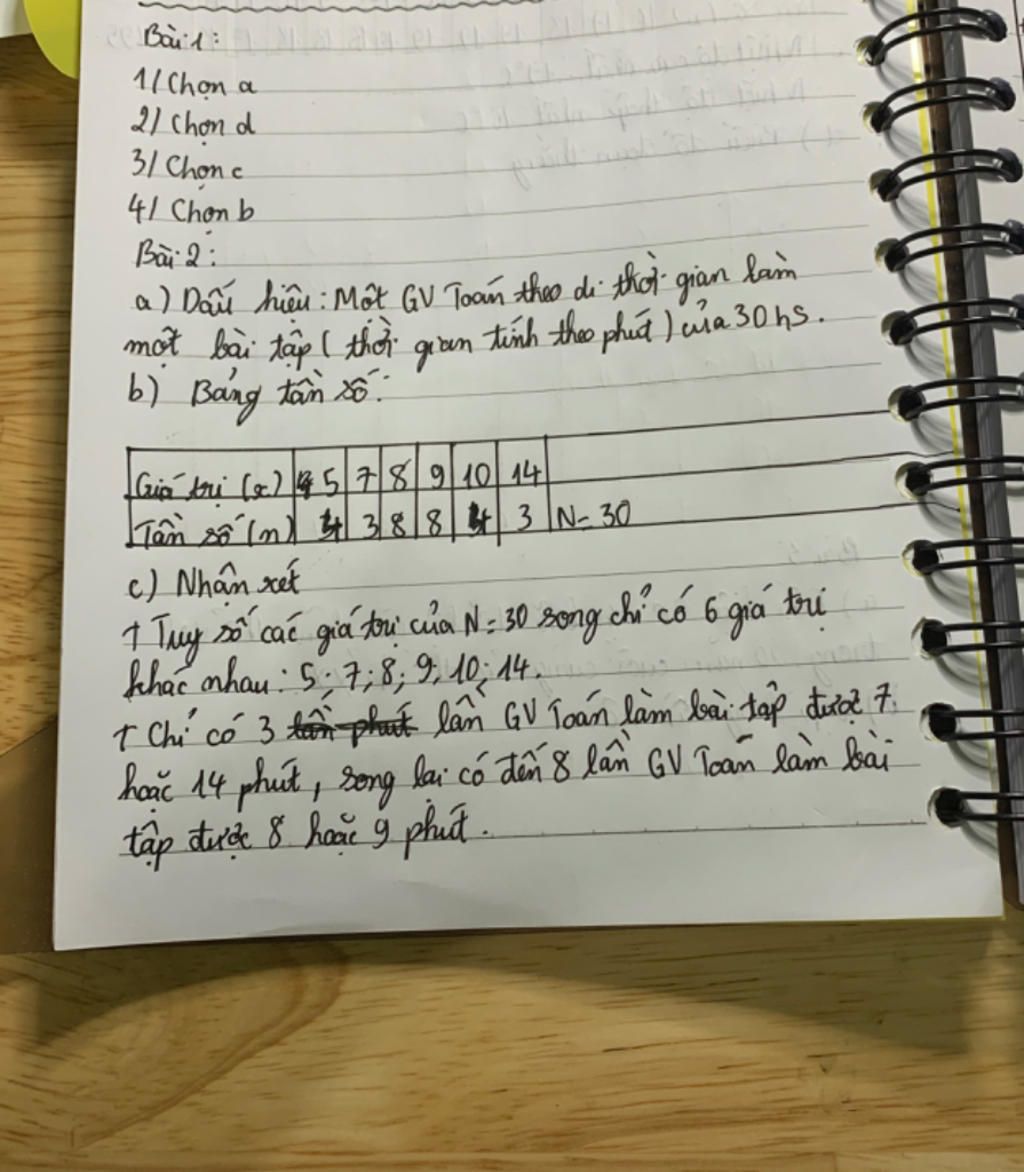 Bài 1:
1/ Chọn a
2/ Chọn d
3/ Chọn c
4/ Chọn b
Bài 2:
a) Dấu hiệu: Một GV Toán theo di thời gian làm
một bài tập ( thời gian tính theo phút ) của 30 hs.
b) Bảng tần số:
Giá trị (x) 5 7 8 9 10 14
Tần số (n) 4 3 8 8 4 3 N = 30
c) Nhận xét
+ Tuy số các giá trị của N = 30 song chỉ có 6 giá trị
khác nhau: 5; 7; 8; 9; 10; 14.
+ Chỉ có 3 lần phút lần GV Toán làm bài tập được 7
hoặc 14 phút, song lại có đến 8 lần GV Toán làm bài
tập được 8 hoặc 9 phút.